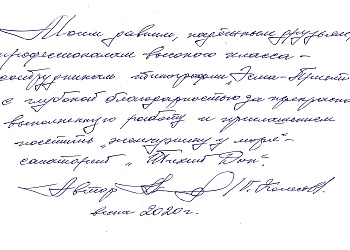 Моим давним, надёжным друзьям,
профессионалам высокого класса -
сотрудникам типографии „Тема-Принт"
с глубокой благодарностью за прекрасно
выполненную работу и приглашением
посетить „жемчужину у моря" -
санаторий „Тихий Дон".
Автор
весна 2020г.